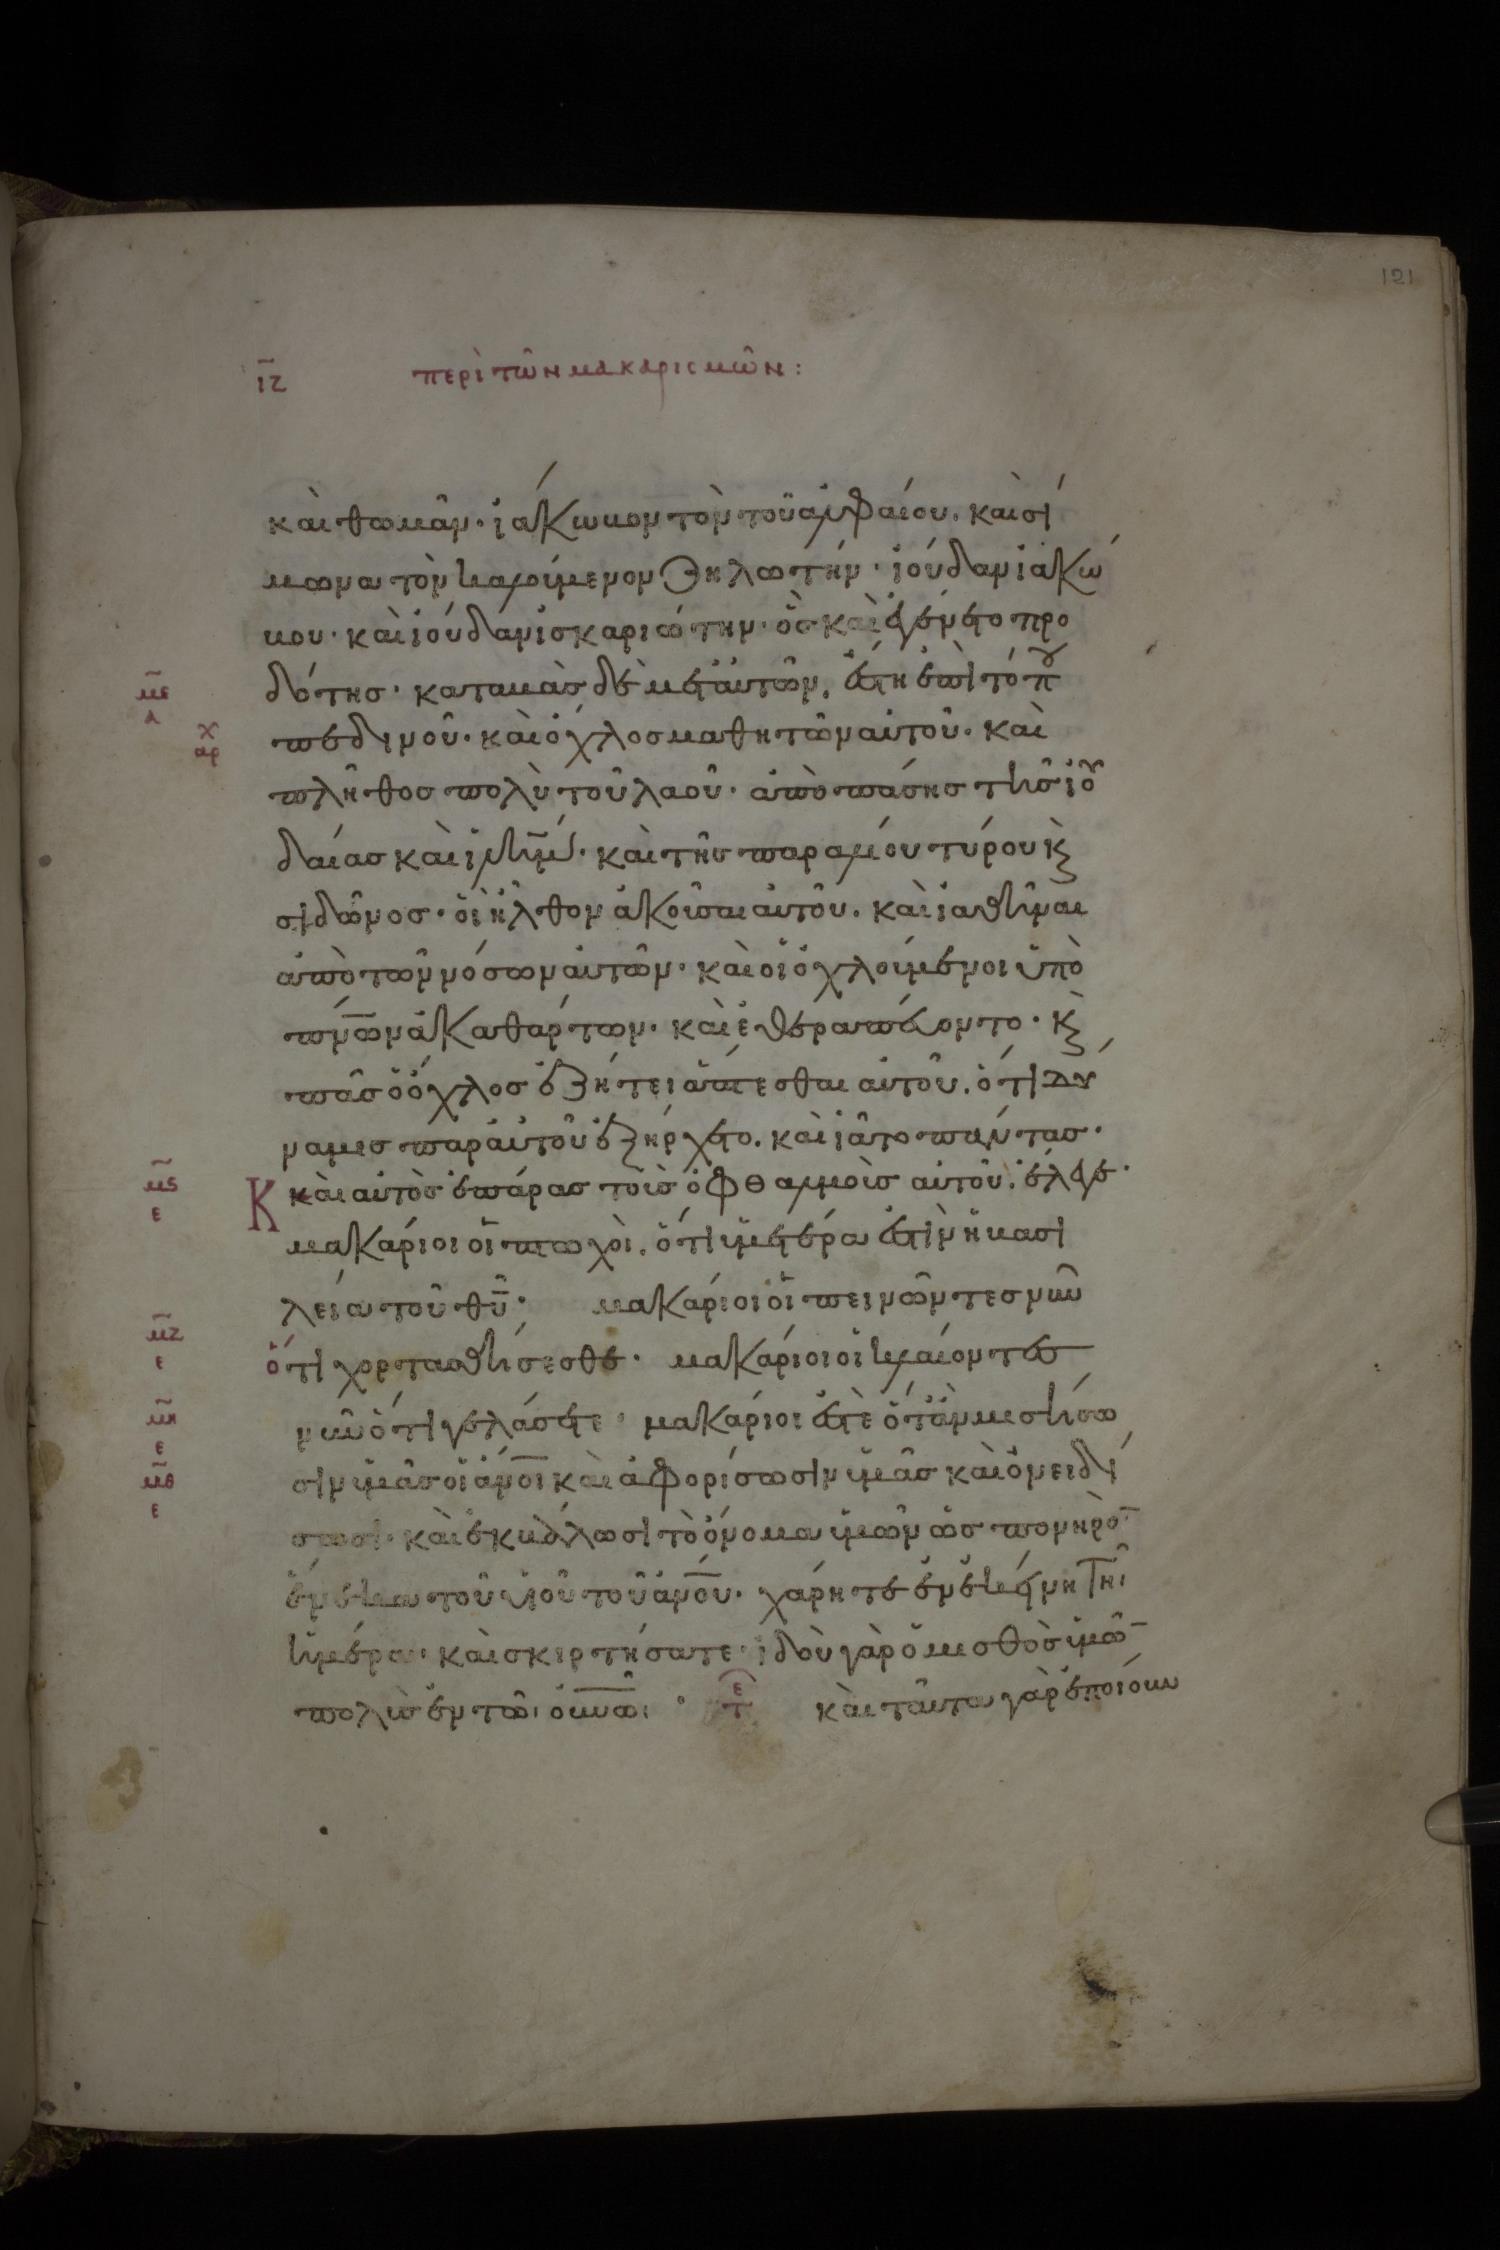 121
ιζ περὶ τῶν μακαρισμῶν:
καὶ θωμᾶν· ἰάκωβον τὸν τοῦ ἀλφαίου. καὶ σί
μωνα τὸν καλούμενον ζηλωτήν· ἰούδαν ἰακώ
βου· καὶ ἰούδαν ἰσκαριώτην· ὃς καὶ ἐγένετο προ
δότης· καταβὰς δὲ μετ' αὐτῶν, ἔστη ἐπὶ τόπου
με
λ
πεδινοῦ· καὶ ὄχλος μαθητῶν αὐτοῦ· καὶ
χ
αρ
πλῆθος πολὺ τοῦ λαοῦ· ἀπὸ πάσης τῆς ἰου
δαίας καὶ ἰλῆμ· καὶ τῆς παραλίου τύρου κ
σιδῶνος· οἳ ἦλθον ἀκοῦσαι αὐτοῦ. καὶ ἰαθῆναι
ἀπὸ τῶν νόσων αὐτῶν· καὶ οἱ ὀχλούμενοι ὑπὸ
πνῶν ἀκαθάρτων· καὶ ἐθεραπεύοντο· κ
πᾶς ὁ ὄχλος ἐζήτει ἅπτεσθαι αὐτοῦ. ὅτι δύ
ναμις παρ' αὐτοῦ ἐξήρχετο. καὶ ἰᾶτο πάντας·
μς
ε
Κ καὶ αὐτὸς ἐπάρας τοὺς ὀφθαλμοὺς αὐτοῦ. ἔλεγε·
μακάριοι οἱ πτωχοὶ. ὅτι ὑμετέρα ἐστὶν ἡ βασι
λεία τοῦ θυ· μακάριοι οἱ πεινῶντες νῦν
μζ
ε
ὅτι χορτασθήσεσθε· μακάριοι οἱ κλαίοντες
μη
ε
νῦν ὅτι γελάσετε· μακάριοι ἐστὲ ὅταν μισήσω
μθ
ε
σιν ὑμᾶς οἱ ἄνοι καὶ ἀφορίσωσιν ὑμᾶς καὶ ὀνειδί
σωσι· καὶ ἐκβάλωσι τὸ ὄνομα ὑμῶν ὡς πονηρὸ
ἕνεκα τοῦ υἱοῦ τοῦ ἀνου· χάρητε ἐν ἐκείνη τῆι
ἡμέρα· καὶ σκιρτήσατε· ἰδοὺ γὰρ ὁ μισθὸς ὑμῶ
πολὺς ἐν τῶι οὐνῶι· ετ καὶ ταῦτα γὰρ ἐποίουν